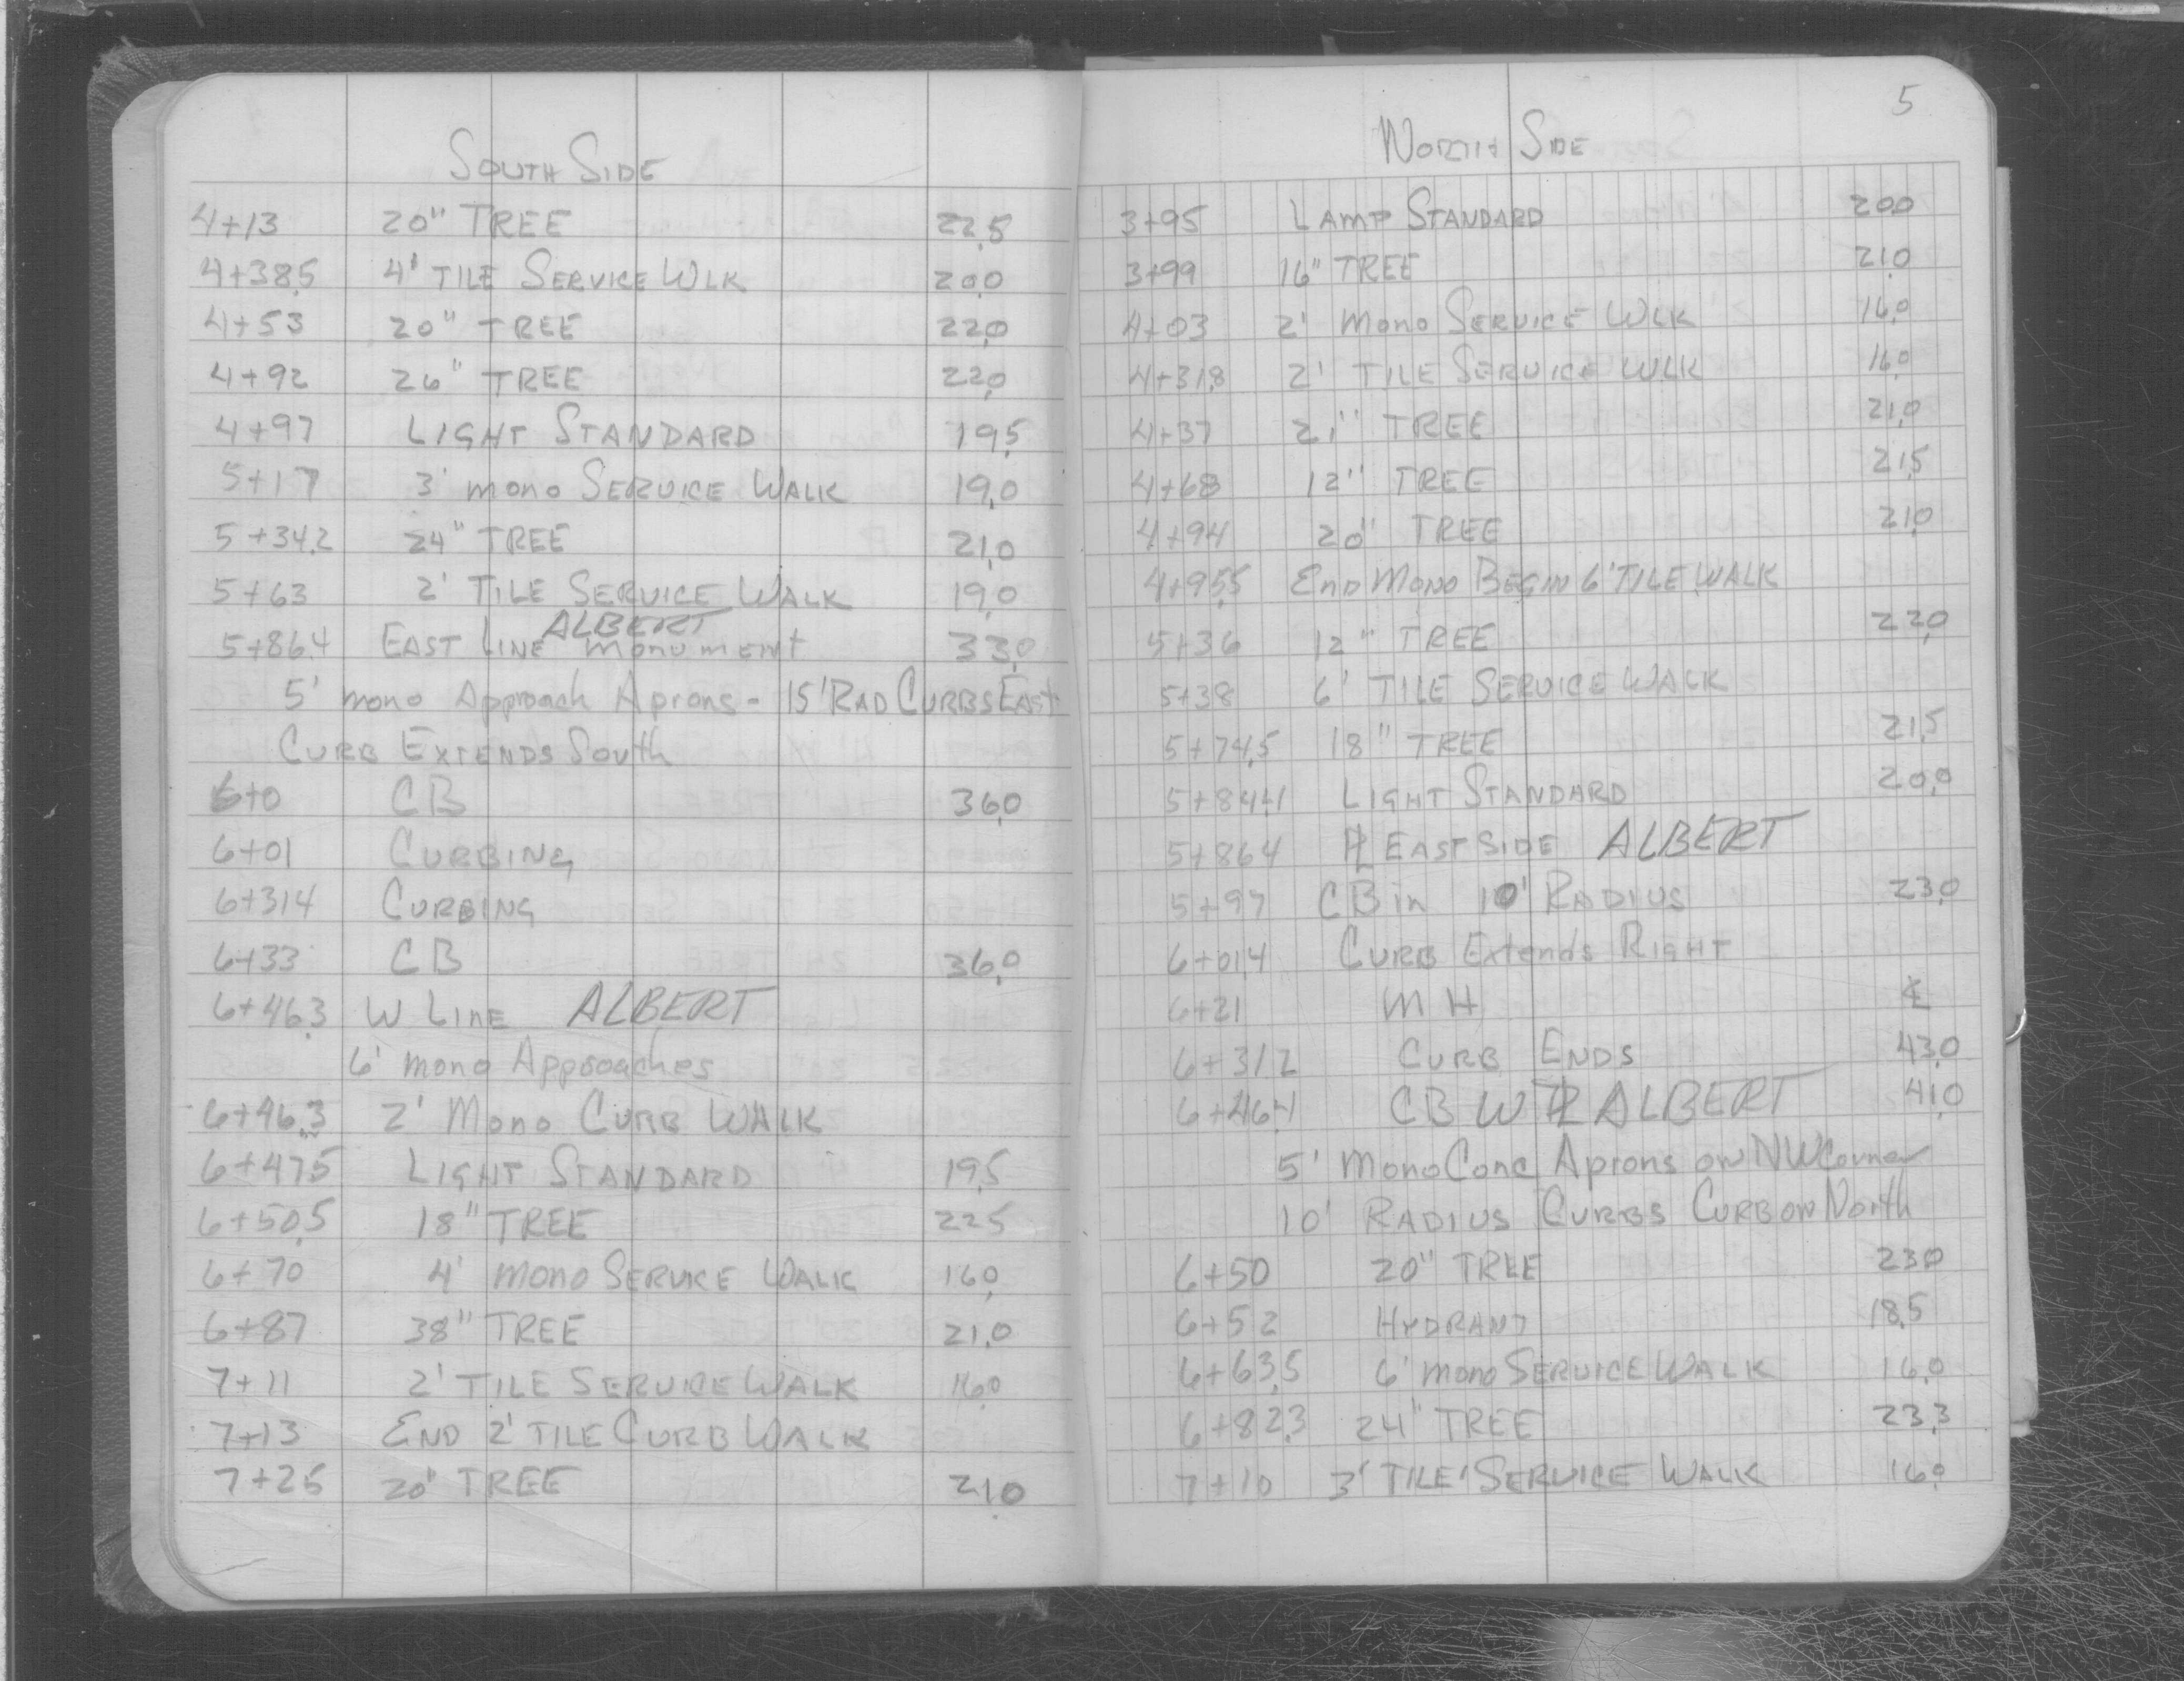 SOUTH SIDE
4+13 20" TREE 22.5
4+38.5 4' TILE SERVICE WLK 20.0
4+53 20" TREE 22.0
4+92 26" TREE 22.0
4+97 LIGHT STANDARD 19.5
5+17 3' mono SERVICE WALK 19.0
5+34.2 24" TREE 21.0
5+63 2' TILE SERVICE WALK 19.0
ALBERT
5+86.4 EAST LINE monument 33.0
5' mono Approach Aprons - 15' RAD CURBS East
CURB EXTENDS South
6+0 CB 36.0
6+01 CURBING
6+31.4 CURBING
6+33 CB 36.0
6+46.3 W LINE ALBERT
6' mono Approaches
6+46.3 2' Mono CURB WALK
6+47.5 LIGHT STANDARD 19.5
6+50.5 18" TREE 22.5
6+70 4' mono SERVICE WALK 16.0
6+87 38" TREE 21.0
7+11 2' TILE SERVICE WALK 16.0
7+13 END 2' TILE CURB WALK
7+25 20" TREE 21.0
5
NORTH SIDE
3+95 LAMP STANDARD 20.0
3+99 16" TREE 21.0
4+03 2' mono SERVICE WLK 16.0
4+31.8 2' TILE SERVICE WLK 16.0
4+37 21" TREE 21.0
4+68 12" TREE 21.5
4+94 20" TREE 21.0
4+95.5 End Mono Begin 6' TILE WALK
5+36 12" TREE 22.0
5+38 6' TILE SERVICE WALK
5+74.5 18" TREE 21.5
5+84.1 LIGHT STANDARD 20.0
5+86.4 PL EAST SIDE ALBERT
5+97 CB in 10' RADIUS 23.0
6+01.4 CURB Extends RIGHT
6+21 MH ℄
6+31.2 CURB ENDS 43.0
6+46.1 CB W PL ALBERT 41.0
5' Mono Conc Aprons on NW Corner
10' RADIUS CURBS CURB on North
6+50 20" TREE 23.0
6+52 HYDRANT 18.5
6+63.5 6' mono SERVICE WALK 16.0
6+82.3 24" TREE 23.3
7+10 3' TILE SERVICE WALK 16.0